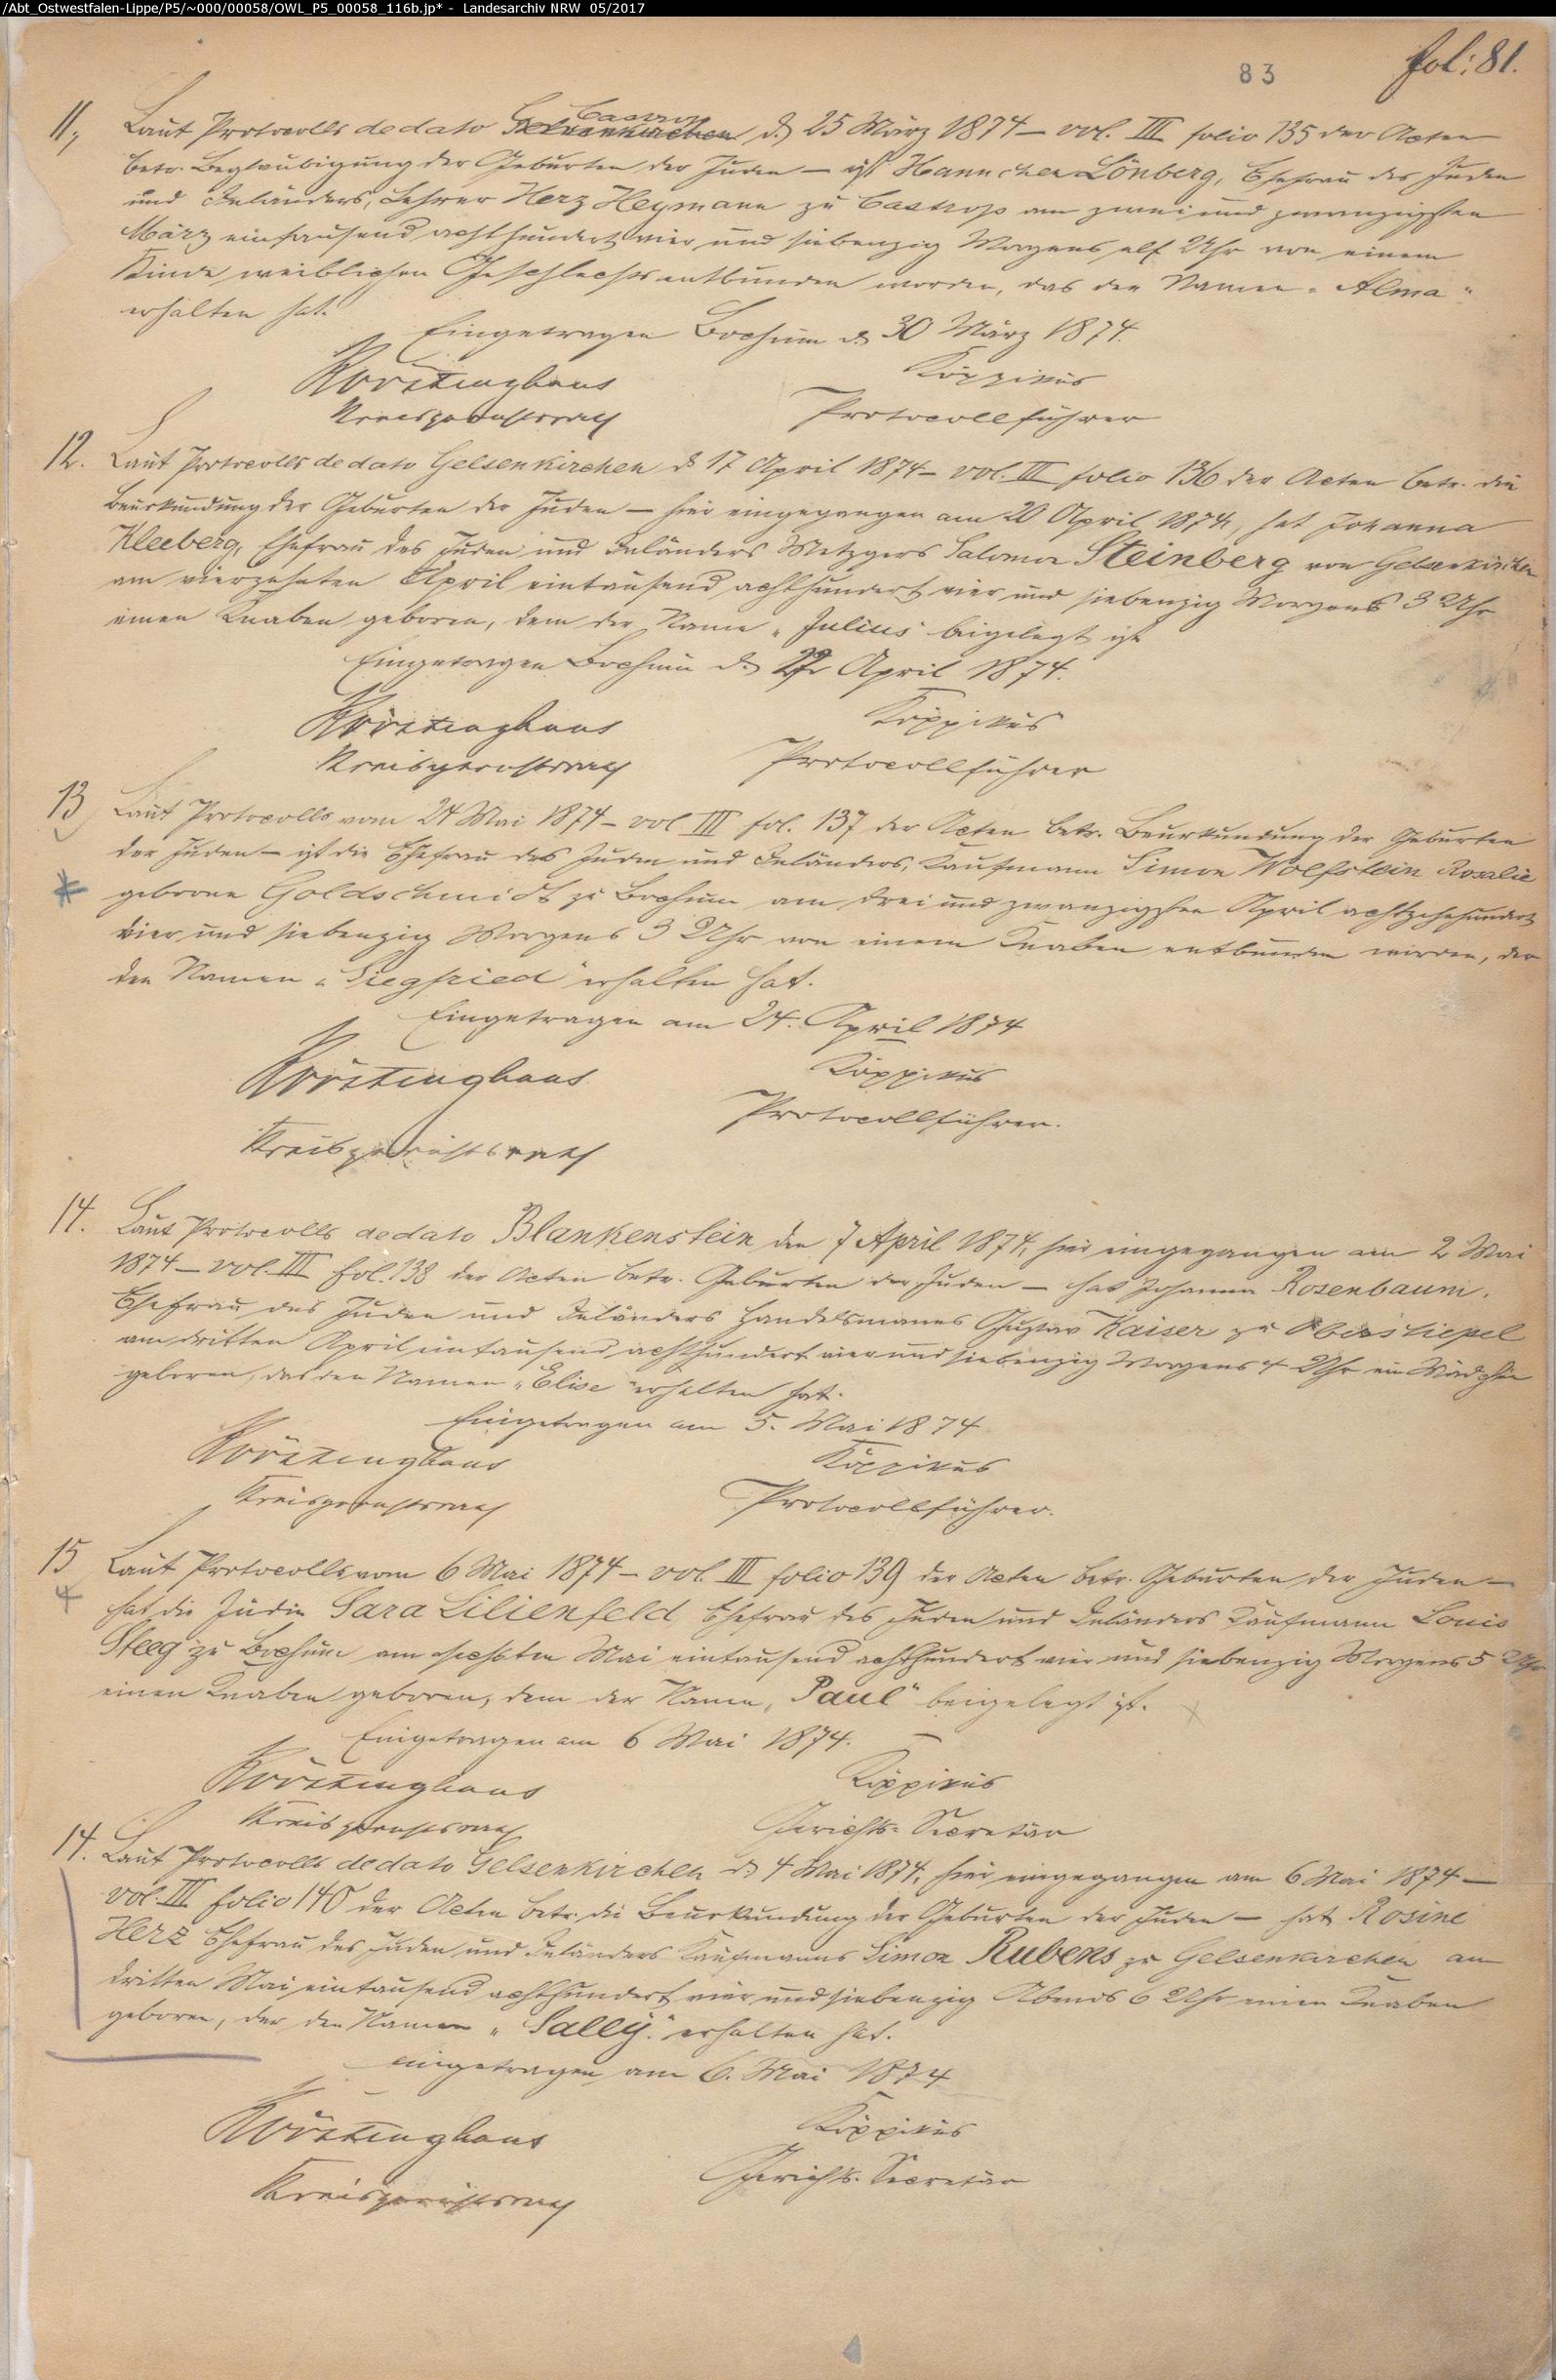 /Abt_Ostwestfalen-Lippe/P5/~000/00058/OWL_P5_00058_116b.jp* - Landesarchiv NRW 05/2017
83
fol: 81.
Castrop
11, Laut Protocolls de dato Gelsenkirchen d. 25 März 1874 – vol. III folio 135 der Acten
betr. Beglaubigung der Geburten der Juden – ist Hannchen Lönberg, Ehefrau des Juden
und Inländers, Lehrer Herz Heymann zu Castrop am zwei und zwanzigsten
März eintausend achthundert vier und siebenzig Morgens elf Uhr von einem
Kinde weiblichen Geschlechts entbunden worden, das den Namen „Alma“
erhalten hat.
Eingetragen Bochum d. 30 März 1874.
Körtinghaus Köppikus
Kreisgerichtsrath Protocollführer
12. Laut Protocolls de dato Gelsenkirchen d. 17 April 1874 – vol. III folio 136 der Acten betr. die
Beurkundung der Geburten der Juden – hier eingegangen am 20 April 1874, hat Johanna
Kleeberg, Ehefrau des Juden und Inländers Metzgers Salomon Steinberg von Gelsenkirchen
am vierzehnten April eintausend achthundert vier und siebenzig Morgens 3 Uhr
einen Knaben geboren, dem der Name „Julius“ beigelegt ist
Eingetragen Bochum d. April 1874.
Körtinghaus Köppikus
Kreisgerichtsrath Protocollführer
13) Laut Protocolls vom 24 Mai 1874 – vol III fol. 137 der Acten betr. Beurkundung der Geburten
der Juden – ist die Ehefrau des Juden und Inländers, Kaufmann Simon Wolfstein Rosalie
geborene Goldschmidt zu Bochum am drei und zwanzigsten April achtzehnhundert
vier und siebenzig Morgens 3 Uhr von einem Knaben entbunden worden, der
den Namen „Siegfried“ erhalten hat.
Eingetragen am 24. April 1874
Körtinghaus Köppikus
Protocollführer.
Kreisgerichtsrath
14. Laut Protocolls de dato Blankenstein den 7 April 1874, hier eingegangen am 2 Mai
1874 – vol. III fol. 138 der Acten betr. Geburten der Juden – hat Johanna Rosenbaum,
Ehefrau des Juden und Inländers Handelsmanns Gustav Kaiser zu Oberstiepel
am dritten April eintausend achthundert vier und siebenzig Morgens 4 Uhr ein Mädchen
geboren, das den Namen „Elise“ erhalten hat.
Eingetragen am 5. Mai 1874
Körtinghaus Köppikus
Kreisgerichtsrath Protocollführer.
15 Laut Protocolls vom 6 Mai 1874 – vol. III folio 139 der Acten betr. Geburten der Juden –
hat die Jüdin Sara Lilienfeld Ehefrau des Juden und Inländers Kaufmann Louis
Steeg zu Bochum am sechsten Mai eintausend achthundert vier und siebenzig Morgens 5 Uhr
einen Knaben geboren, dem der Name „Paul“ beigelegt ist.
Eingetragen am 6 Mai 1874.
Körtinghaus Köppikus
Kreisgerichtsrath Gerichts-Secretär
14. Laut Protocolls de dato Gelsenkirchen d. 4 Mai 1874, hier eingegangen am 6 Mai 1874 –
vol. III folio 140 der Acten betr. die Beurkundung der Geburten der Juden – hat Rosine
Herz Ehefrau des Juden und Inländers Kaufmanns Simon Rubens zu Gelsenkirchen am
dritten Mai eintausend achthundert vier und siebenzig Abends 6 Uhr einen Knaben
geboren, der den Namen „Sally“ erhalten hat.
eingetragen am 6. Mai 1874
Körtinghaus Köppikus
Kreisgerichtsrath Gerichts-Secretär